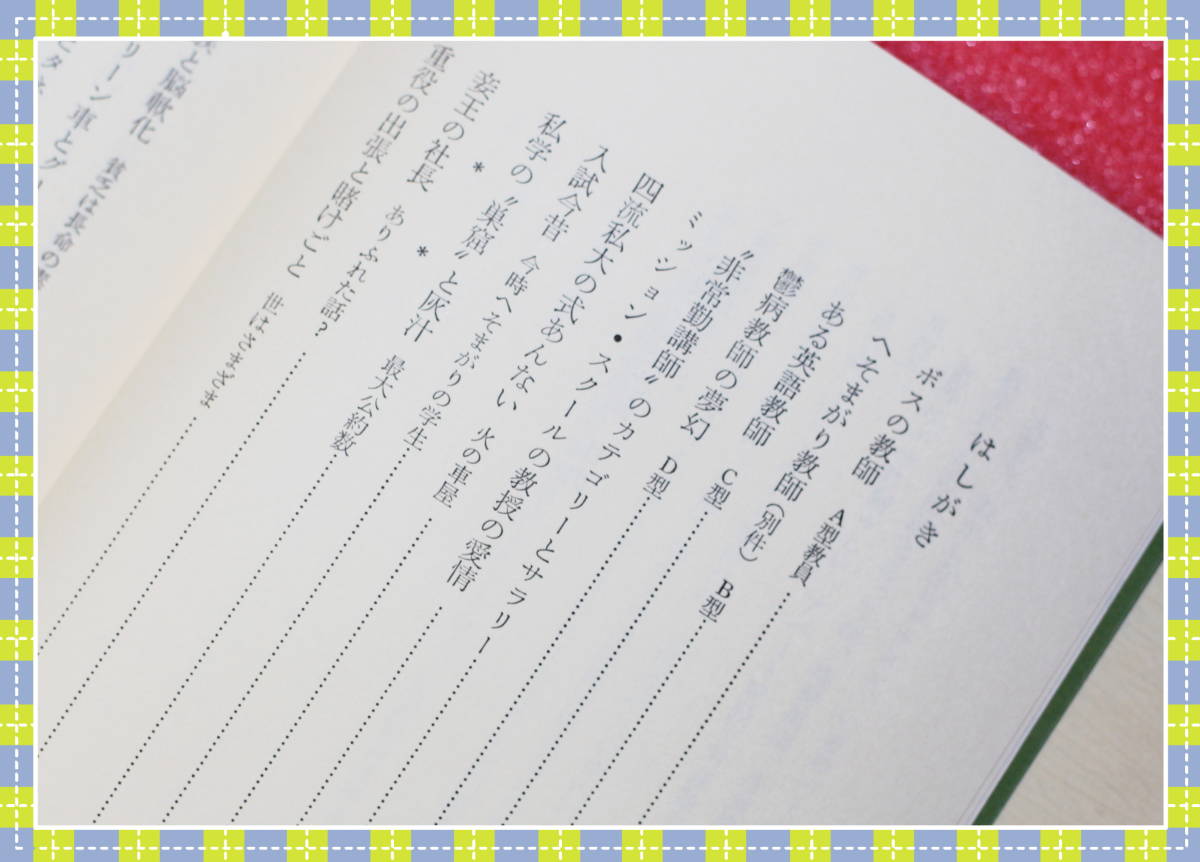 はしがき
ボスの教師　A型教員……………
へそまがり教師（別件）　B型……………
ある英語教師　C型……………
鬱病教師の夢幻　D型……………
〝非常勤講師〟のカテゴリーとサラリー……………
ミッション・スクールの教授の愛情……………
四流私大の式あんない　火の車屋……………
入試今昔　今時へそまがりの学生……………
私学の〝巣窟〟と灰汁　最大公約数……………
＊　＊
妾王の社長　ありふれた話？……………
重役の出張と賭けごと　世はさまざま……………
と脳軟化　貧乏は長命の
リーン車とグ